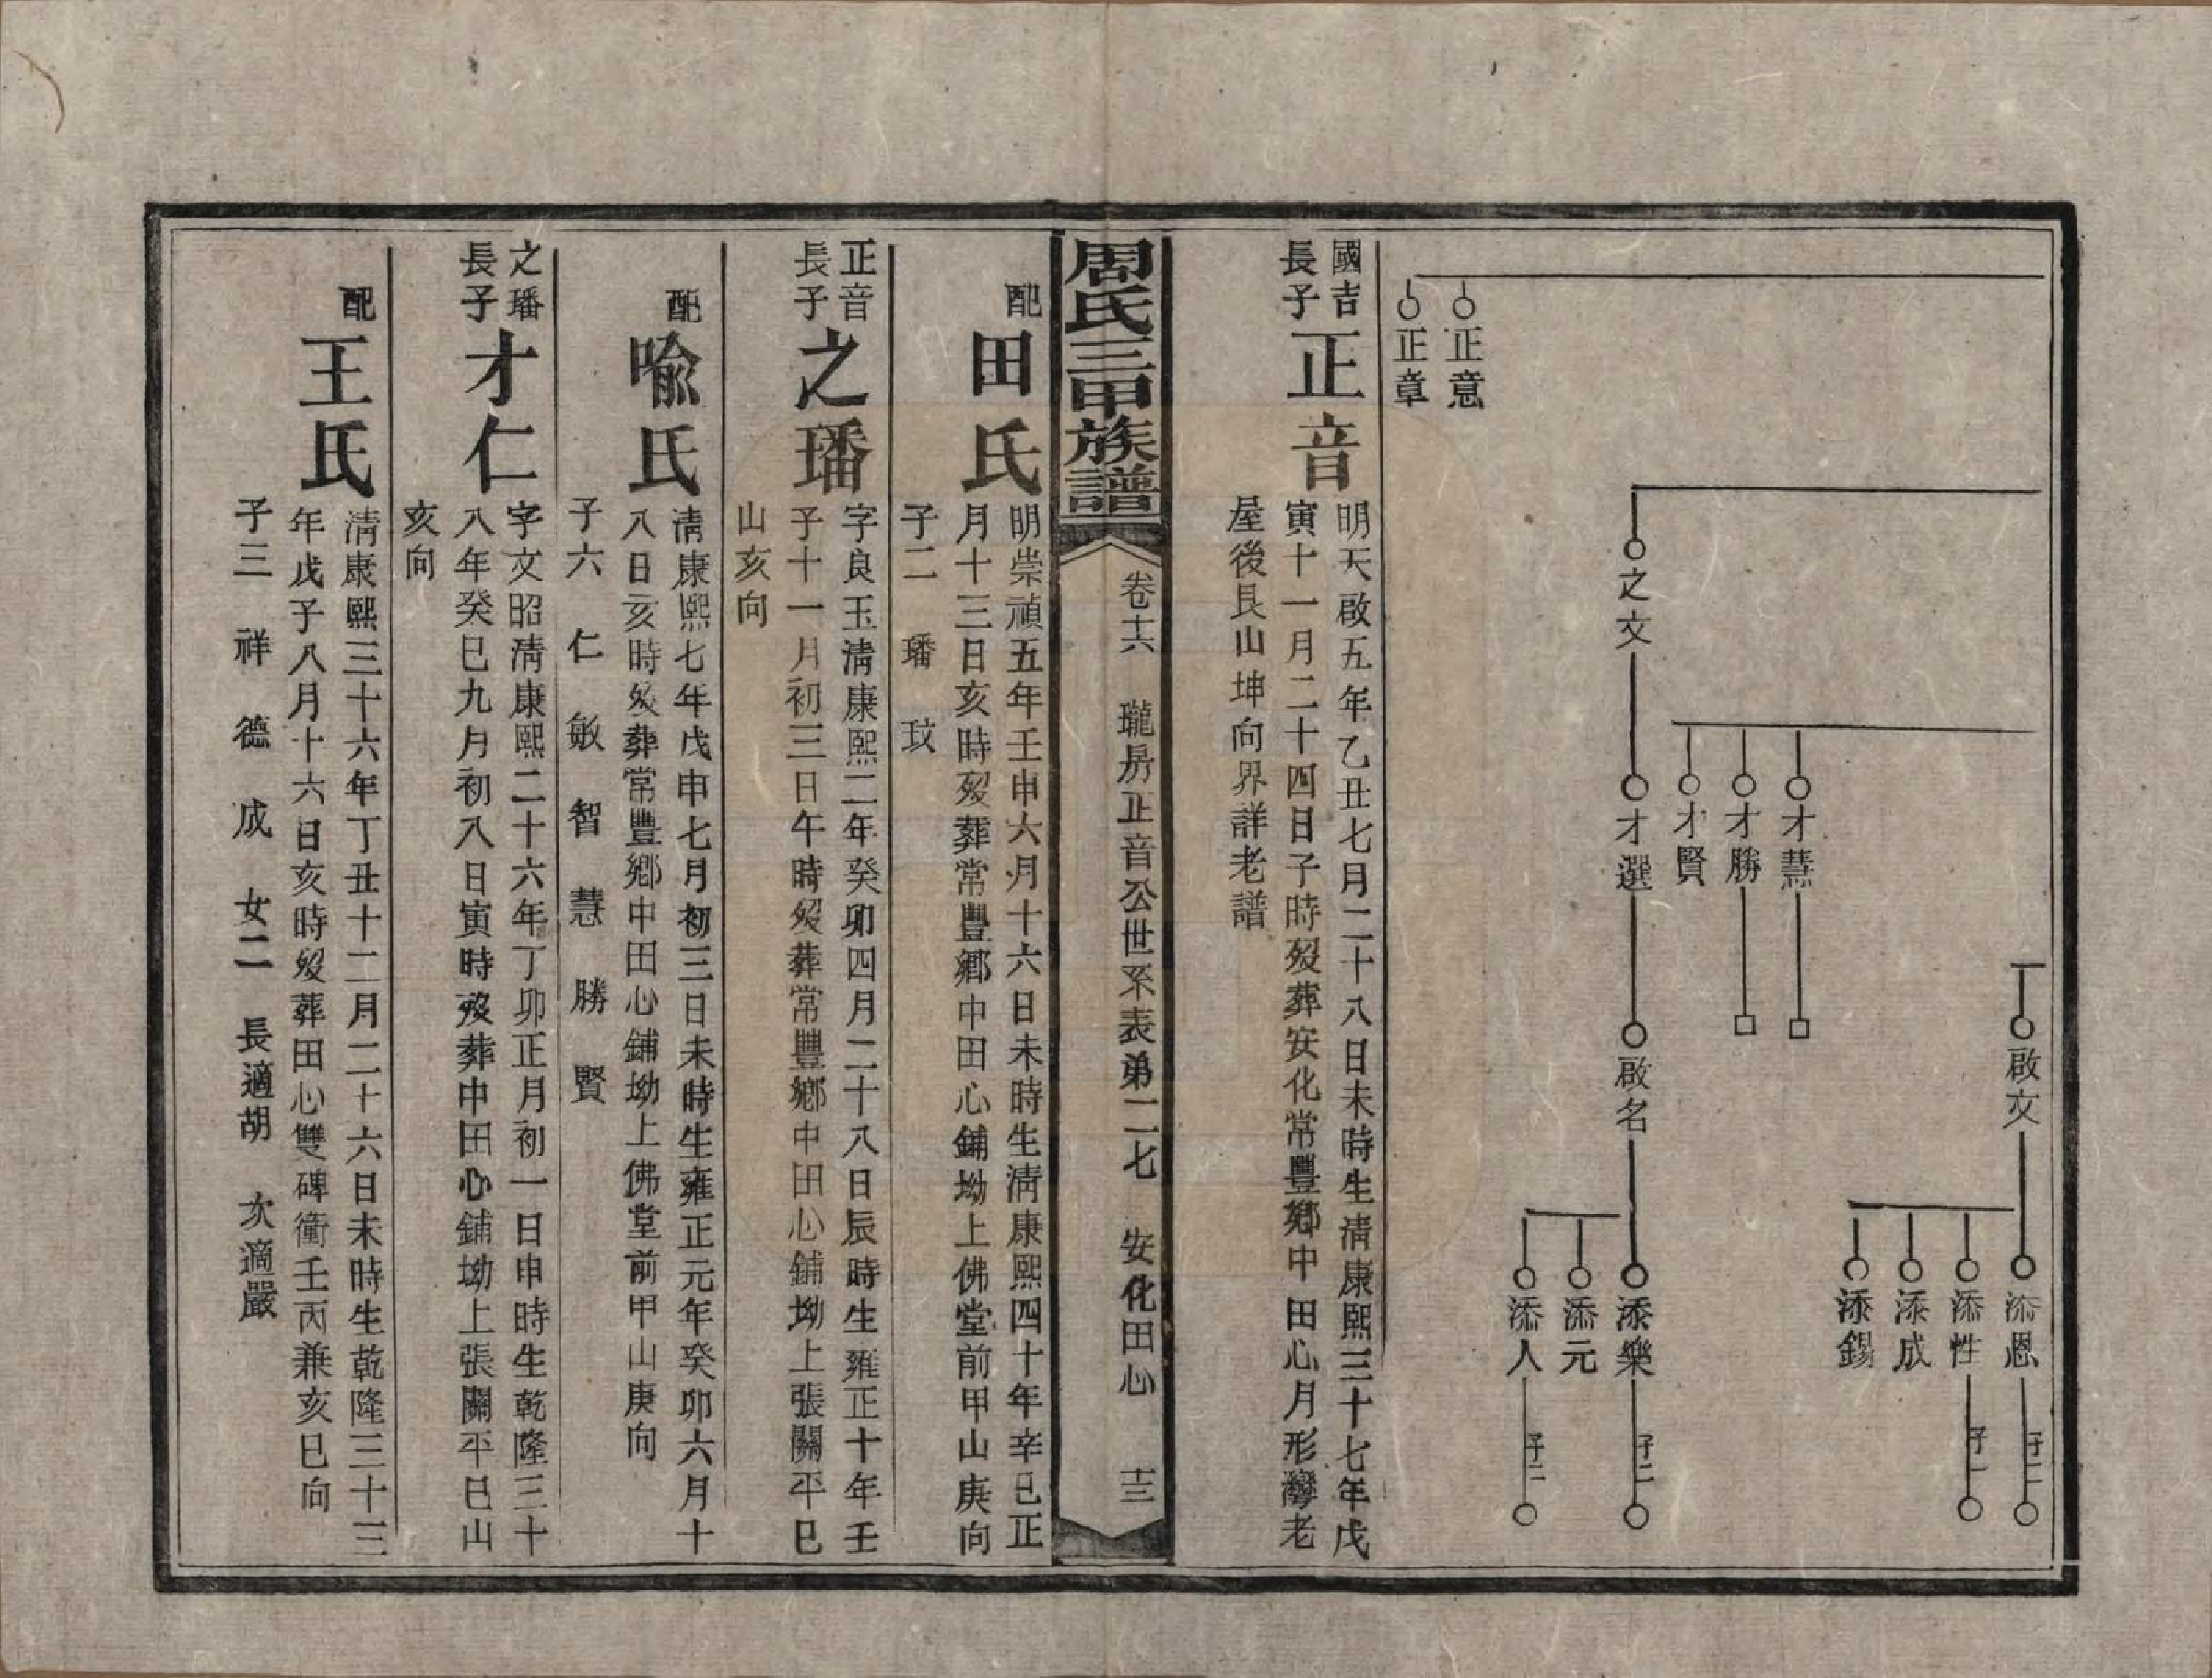 啟文
添恩
子二
添性
子一
添成
添錫
才慧
才勝
才賢
之文
才選
啟名
添樂
子二
添元
添人
子二
正意
正章
國吉
長子
正音
明天啟五年乙丑七月二十八日未時生清康熙三十七年戊
寅十一月二十四日子時歿葬安化常豐鄉中田心月形灣老
屋後艮山坤向界詳老譜
周氏三甲族譜
卷十六 瓏房正音公世系表弟二七 安化田心 十三
配
田氏
明崇禎五年壬申六月十六日未時生清康熙四十年辛巳正
月十三日亥時歿葬常豐鄉中田心鋪坳上佛堂前甲山庚向
子二 璠 玟
正音
長子
之璠
字良玉清康熙二年癸卯四月二十八日辰時生雍正十年壬
子十一月初三日午時歿葬常豐鄉中田心鋪坳上張關平巳
山亥向
配
喻氏
清康熙七年戊申七月初三日未時生雍正元年癸卯六月十
八日亥時歿葬常豐鄉中田心鋪坳上佛堂前甲山庚向
子六 仁 敏 智 慧 勝 賢
之璠
長子
才仁
字文昭清康熙二十六年丁卯正月初一日申時生乾隆三十
八年癸巳九月初八日寅時歿葬中田心鋪坳上張關平巳山
亥向
配
王氏
清康熙三十六年丁丑十二月二十六日未時生乾隆三十三
年戊子八月十六日亥時歿葬田心雙碑衝壬丙兼亥巳向
子三 祥 德 成 女二 長適胡 次適嚴